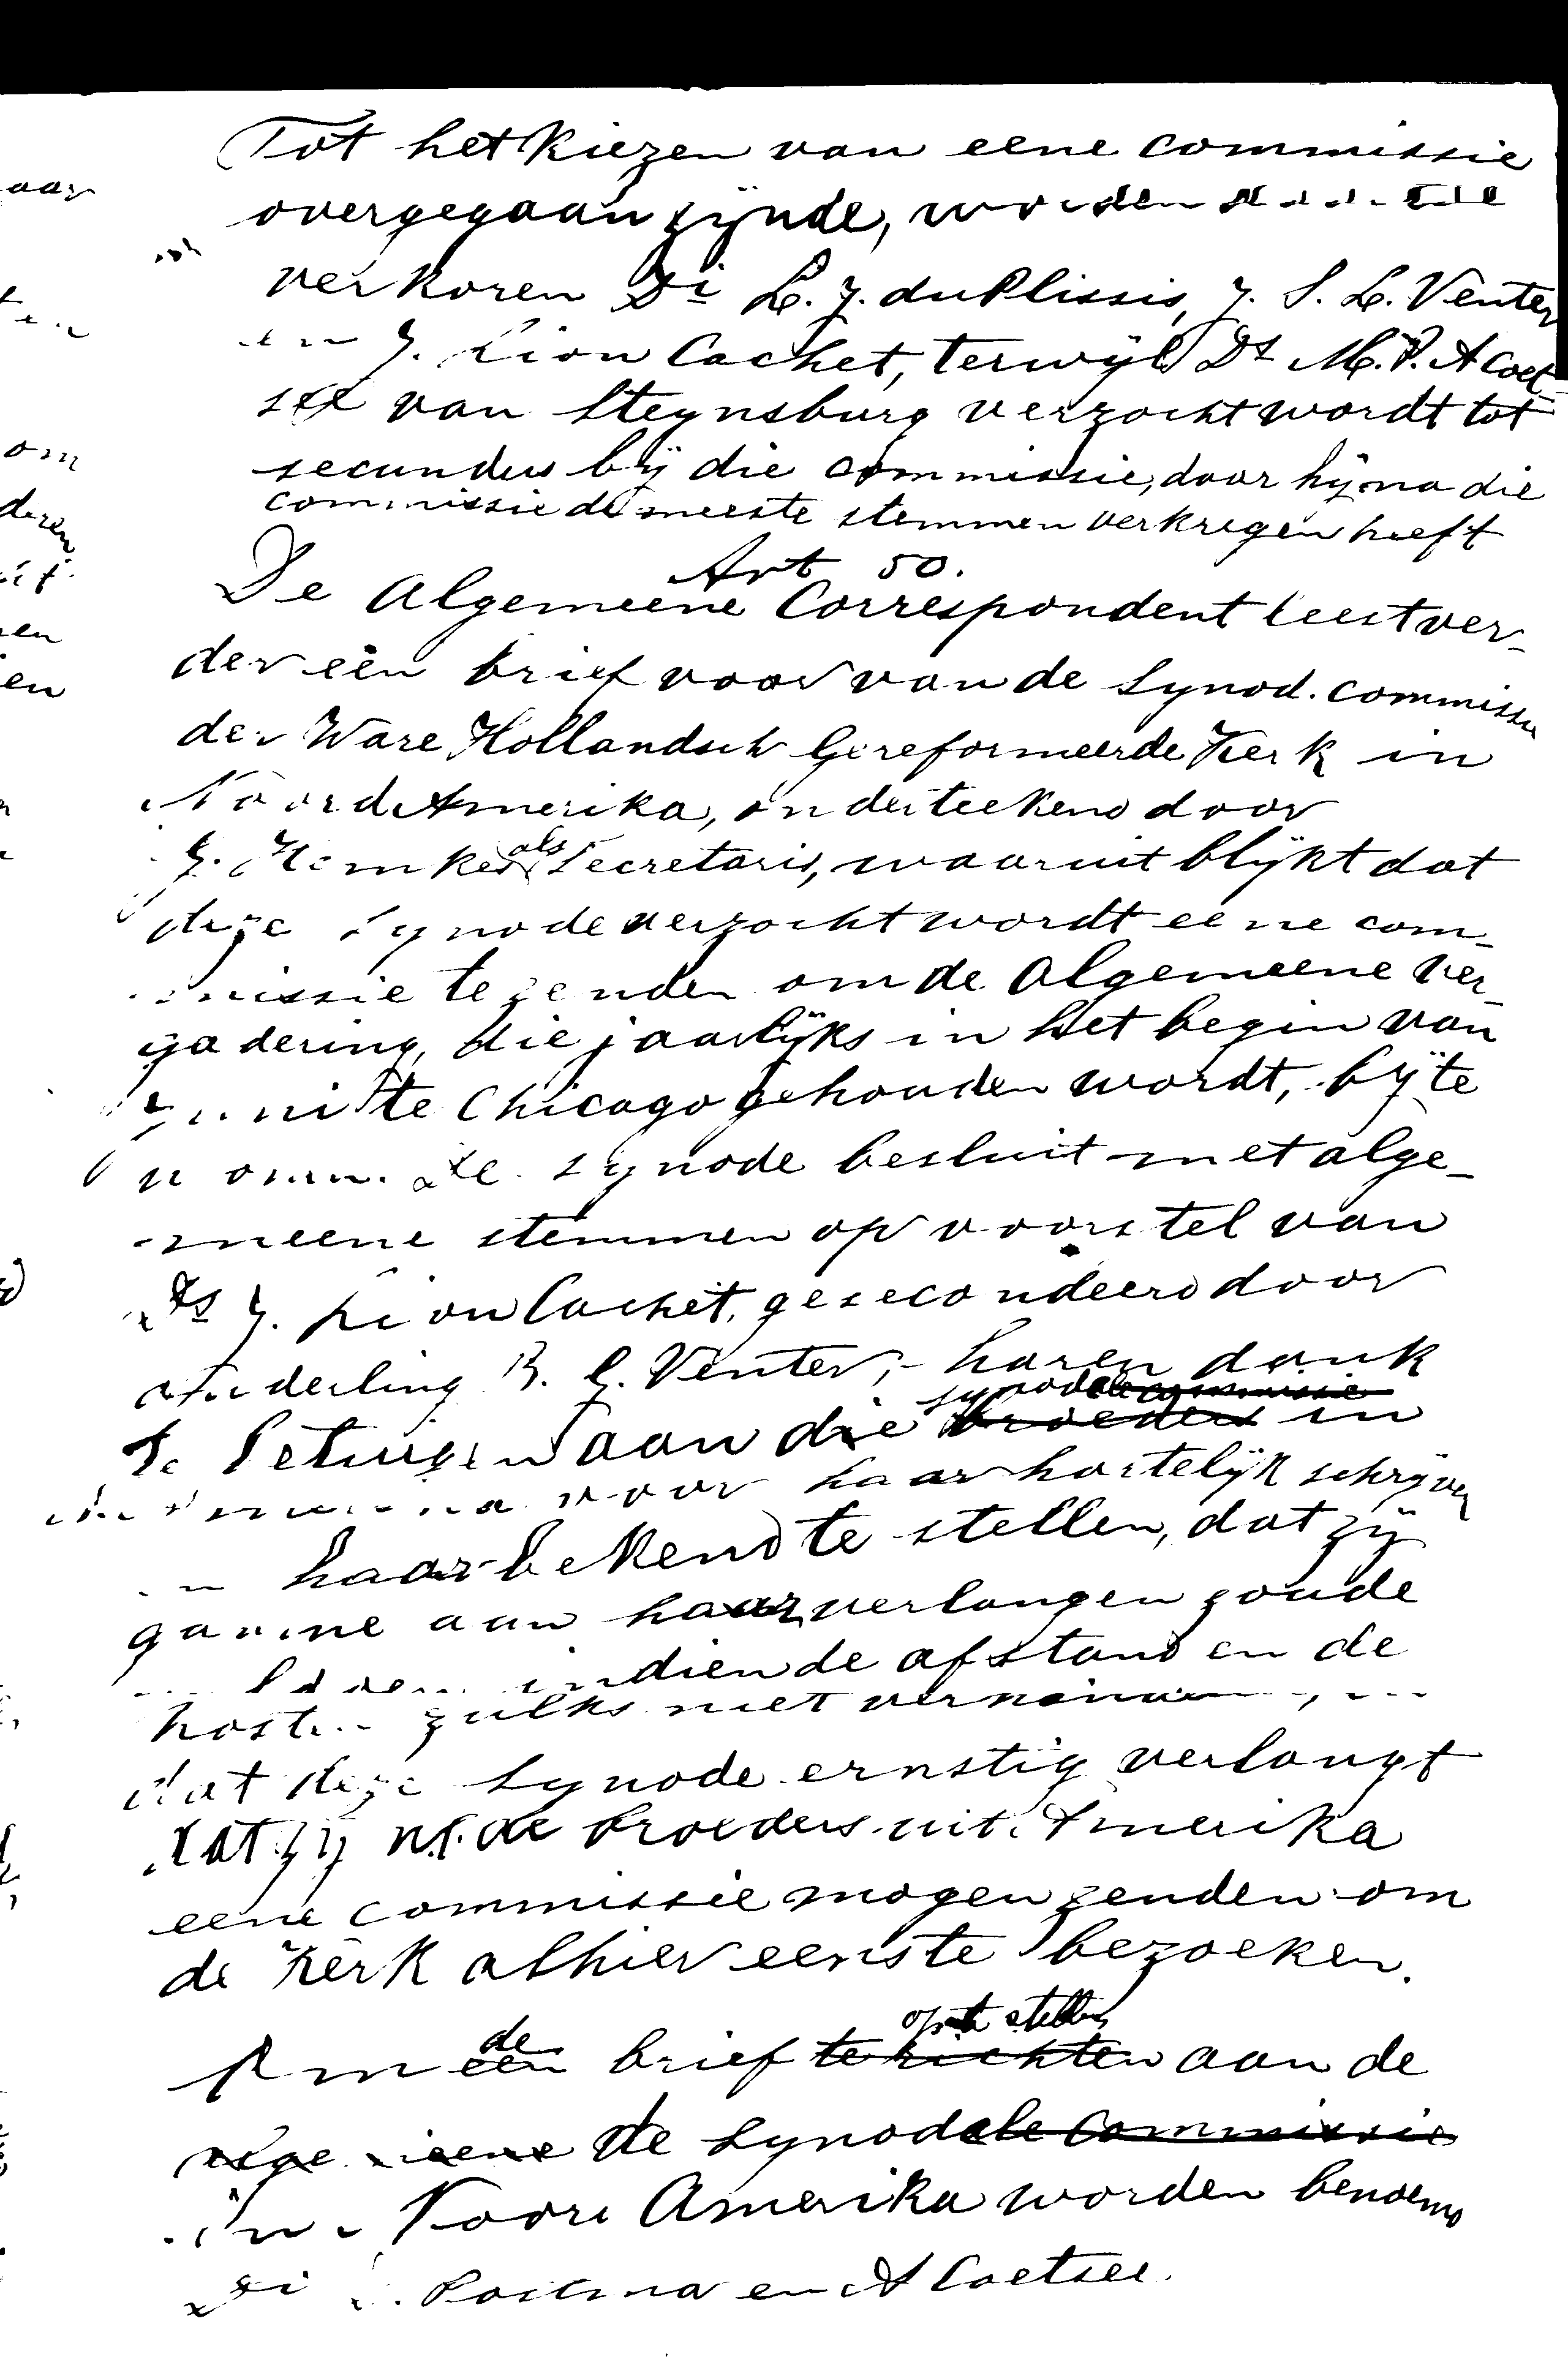 Tot het kiezen van eene commissie
overgegaan zijnde, worden
verkoren Di L. J. du Plissis, J. S. L. Venter
en J. Lion Cachet, terwijl Ds M. P. A Coet-
see van Steynsburg verzocht wordt tot
secundus bij die commissie, daar hij na die
commissie de meeste stemmen verkregen heeft
Art 50.
De Algemeene Correspondent leest ver-
der een brief voor van de Synod. commissie
der Ware Hollandsch Gereformeerde Kerk in
Noord Amerika, onderteekend door
J. Hemkes als Secretaris, waaruit blijkt dat
deze Synode verzocht wordt eene com-
missie te zenden om de Algemeene Ver-
gadering, die jaarlijks in het begin van
Juni te Chicago gehouden wordt, bij te
wonen. De Synode besluit met alge-
meene stemmen op voorstel van
Ds J. Lion Cachet, gesecondeerd door
ouderling B. G. Venter, haren dank
synodale commissie
te betuigen aan die broeders in
voor haar hartelijk schrijven
en haar bekend te stellen, dat zij
gaarne aan haar verlangen zoude
indien de afstand en de
kosten zulks niet
dat deze Synode ernstig verlangt
dat zij nl. de broeders uit Amerika
eene commissie mogen zenden om
de Kerk alhier eens te bezoeken.
de op te stellen
Om een brief te richten aan de
algemeene de Synodale Commissie
in Noord Amerika worden benoemd
Di Postma en A Coetsee.